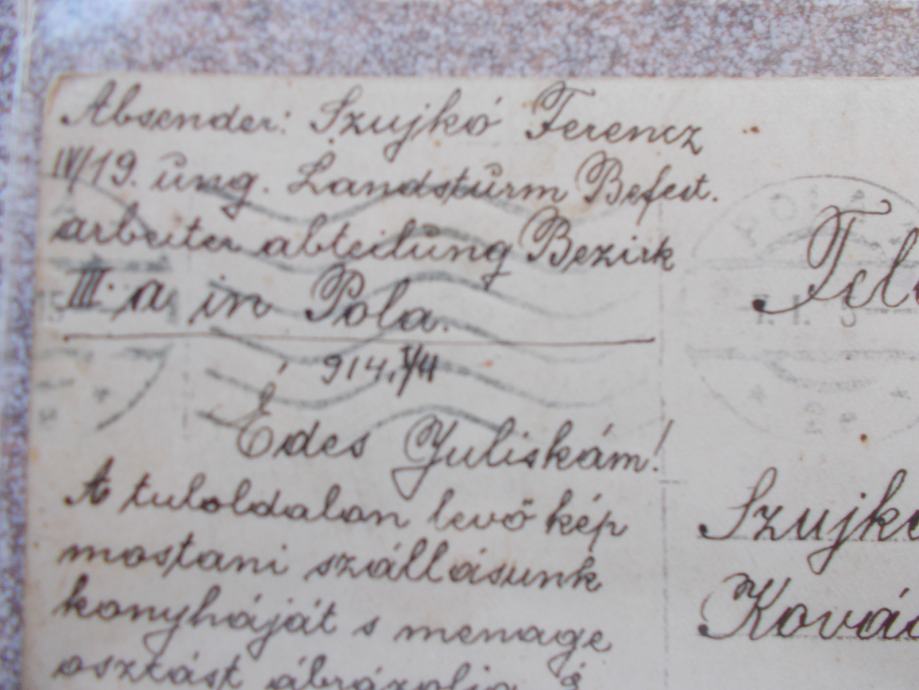 Absender: Szujkó Ferencz
IV/19. ung. Landsturm Befest.
arbeiter abteilung Bezirk
III. a in Pola.
Édes Juliskám!
A tuloldalan levő kép
mostani szállásunk
konyháját s menage
osztást ábrázolja
Fel
Szujkó
Kovác